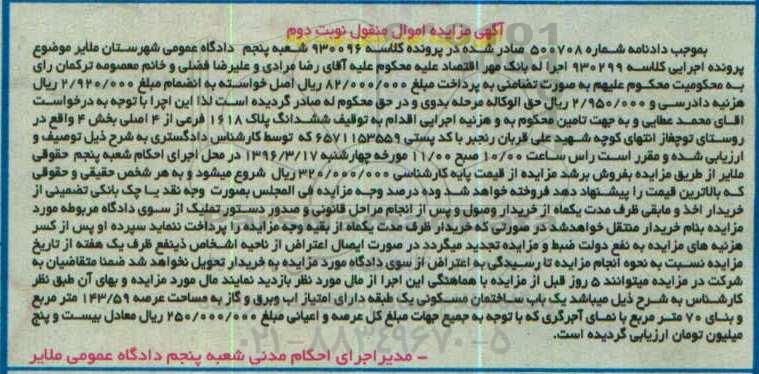 آگهی مزایده اموال منقول نوبت دوم
بموجب دادنامه شماره ۵۰۰۷۰۸ صادر شده در پرونده کلاسه ۹۳۰۰۹۶ شعبه پنجم دادگاه عمومی شهرستان ملایر موضوع
پرونده اجرایی کلاسه ۹۳۰۲۹۹ اجرا له بانک مهر اقتصاد علیه محکوم علیه آقای رضا مرادی و علیرضا فضلی و خانم معصومه ترکمان رای
به محکومیت محکوم علیهم به صورت تضامنی به پرداخت مبلغ ۸۲/۰۰۰/۰۰۰ ریال اصل خواسته به انضمام مبلغ ۲/۹۲۰/۰۰۰ ریال
هزینه دادرسی و ۲/۹۵۰/۰۰۰ ریال حق الوکاله مرحله بدوی و در حق محکوم له صادر گردیده است لذا این اجرا با توجه به درخواست
اقای محمد عطایی و به جهت تامین محکوم به و هزنیه اجرایی اقدام به توقیف ششدانگ پلاک ۱۶۱۸ فرعی از ۴ اصلی بخش ۴ واقع در
روستای توچغاز انتهای کوچه شهید علی قربان رنجبر با کد پستی ۶۵۷۱۱۵۳۵۵۹ که توسط کارشناس دادگستری به شرح ذیل توصیف و
ارزیابی شده و مقرر است راس ساعت ۱۰/۰۰ صبح ۱۱/۰۰ مورخه چهارشنبه ۱۳۹۶/۳/۱۷ در محل اجرای احکام شعبه پنجم حقوقی
ملایر از طریق مزایده بفروش برشد مزایده از قیمت پایه کارشناسی ۳۲۰/۰۰۰/۰۰۰ ریال شروع میشود و به هر شخص حقیقی و حقوقی
که بالاترین قیمت را پیشنهاد دهد فروخته خواهد شد وده درصد وجه مزایده فی المجلس بصورت وجه نقد یا چک بانکی تضمینی از
خریدار اخذ و مابقی ظرف مدت یکماه از خریدار وصول و پس از انجام مراحل قانونی و صدور دستور تملیک از سوی دادگاه مربوطه مورد
مزایده بنام خریدار منتقل خواهدشد در صورتی که خریدار ظرف مدت یکماه از بقیه وجه مزایده را پرداخت ننماید سپرده او پس از کسر
هزنیه های مزایده به نفع دولت ضبط و مزایده تجدید میگردد در صورت ایصال اعتراض از ناحیه اشخاص ذینفع ظرف یک هفته از تاریخ
مزایده نسبت به نحوه انجام مزایده تا رسیدگی به اعتراض از سوی دادگاه مورد مزایده به خریدار تحویل نخواهد شد ضمنا متقاضیان به
شرکت در مزایده میتوانند ۵ روز قبل از مزایده با هماهنگی این اجرا از مال مورد نظر بازدید نمایند مال مورد مزایده و بهای آن طبق نظر
کارشناس به شرح ذیل میباشد یک باب ساختمان مسکونی یک طبقه دارای امتیاز اب وبرق و گاز به مساحت عرصه ۱۴۳/۵۹ متر مربع
و بنای ۷۰ متر مربع با نمای آجرگری که با توجه به جمیع جهات مبلغ کل عرصه و اعیانی مبلغ ۲۵۰/۰۰۰/۰۰۰ ریال معادل بیست و پنج
میلیون تومان ارزیابی گردیده است.
– مدیراجرای احکام مدنی شعبه پنجم دادگاه عمومی ملایر
۰۲۱-۸۸۳۴۹۶۷۰-۵